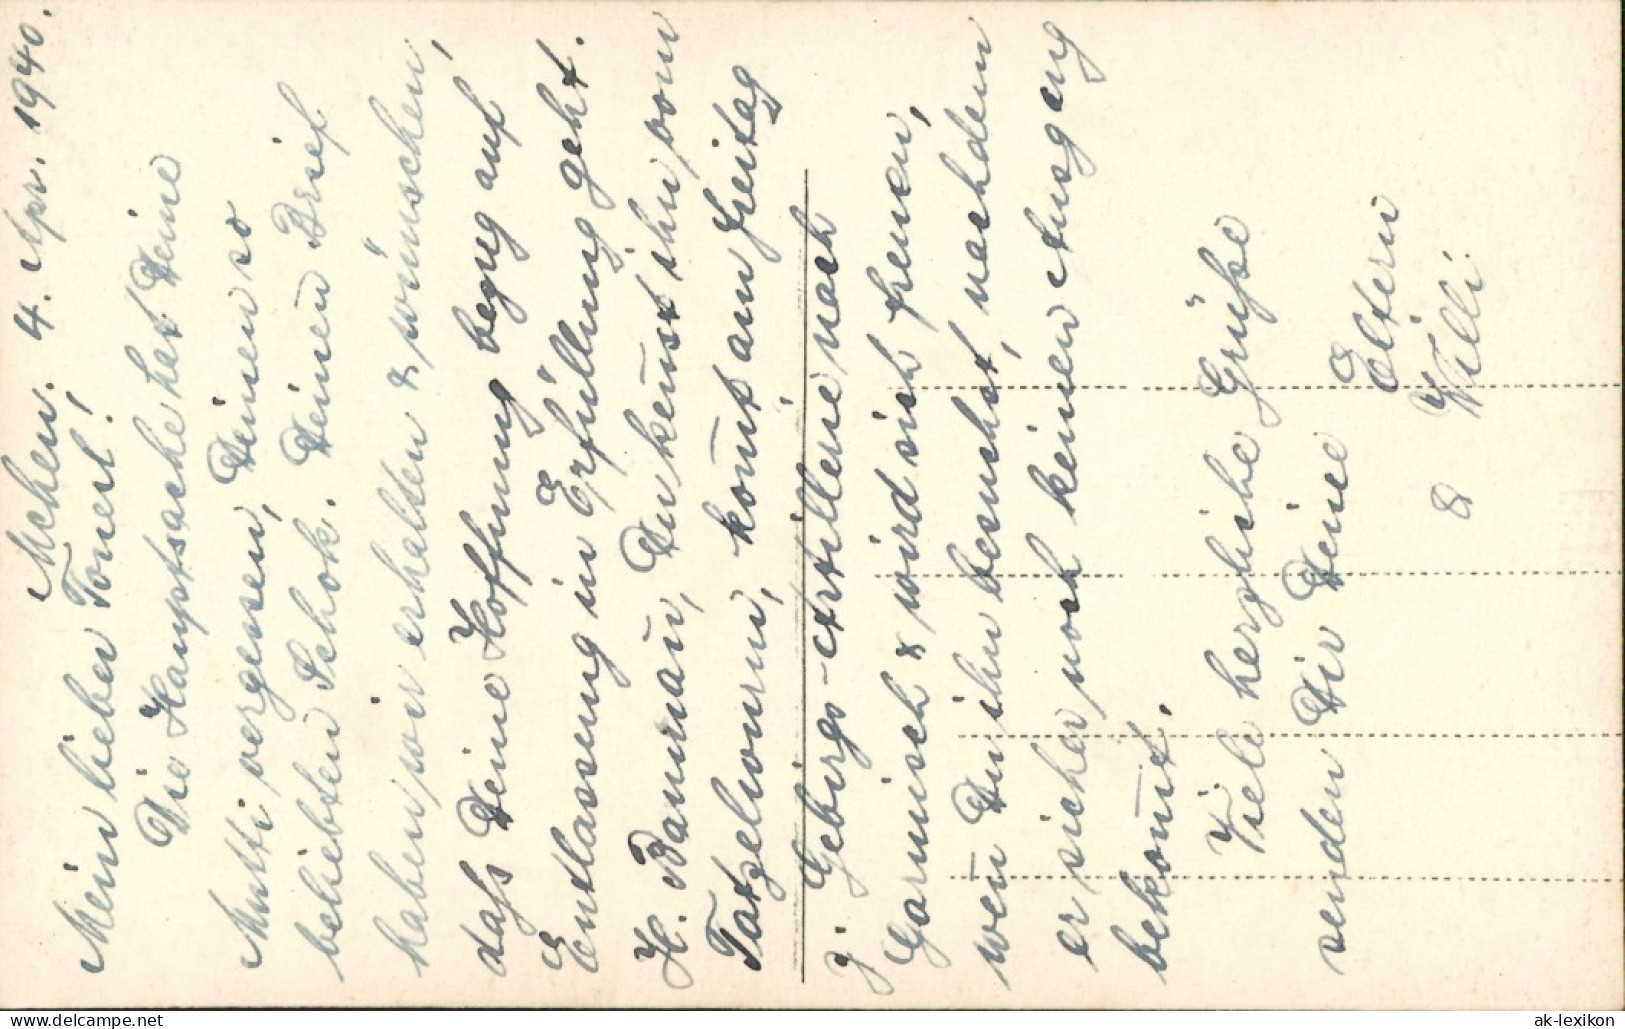 Mchen. 4. Apr. 1940.
Mein lieber Tonerl!
Die Hauptsache hat Deine
Mutti vergessen, Deinen so
beliebten Schok. Deinen Brief
haben wir erhalten & wünschen,
daß Deine Hoffnung bezug auf
Entlassung in Erfüllung geht.
H. Baumañ, Du keñst ihn vom
Tatzelwurm, kom̄t am Freitag
z. Gebirgs-Artillerie nach
Garmisch & wird sich freuen,
weñ Du ihn besuchst, nachdem
er sicher noch keinen Ausgang
bekom̄t.
Viele herzliche Grüße
senden Dir Deine Eltern
& Willi.
www.delcampe.net
ak-lexikon